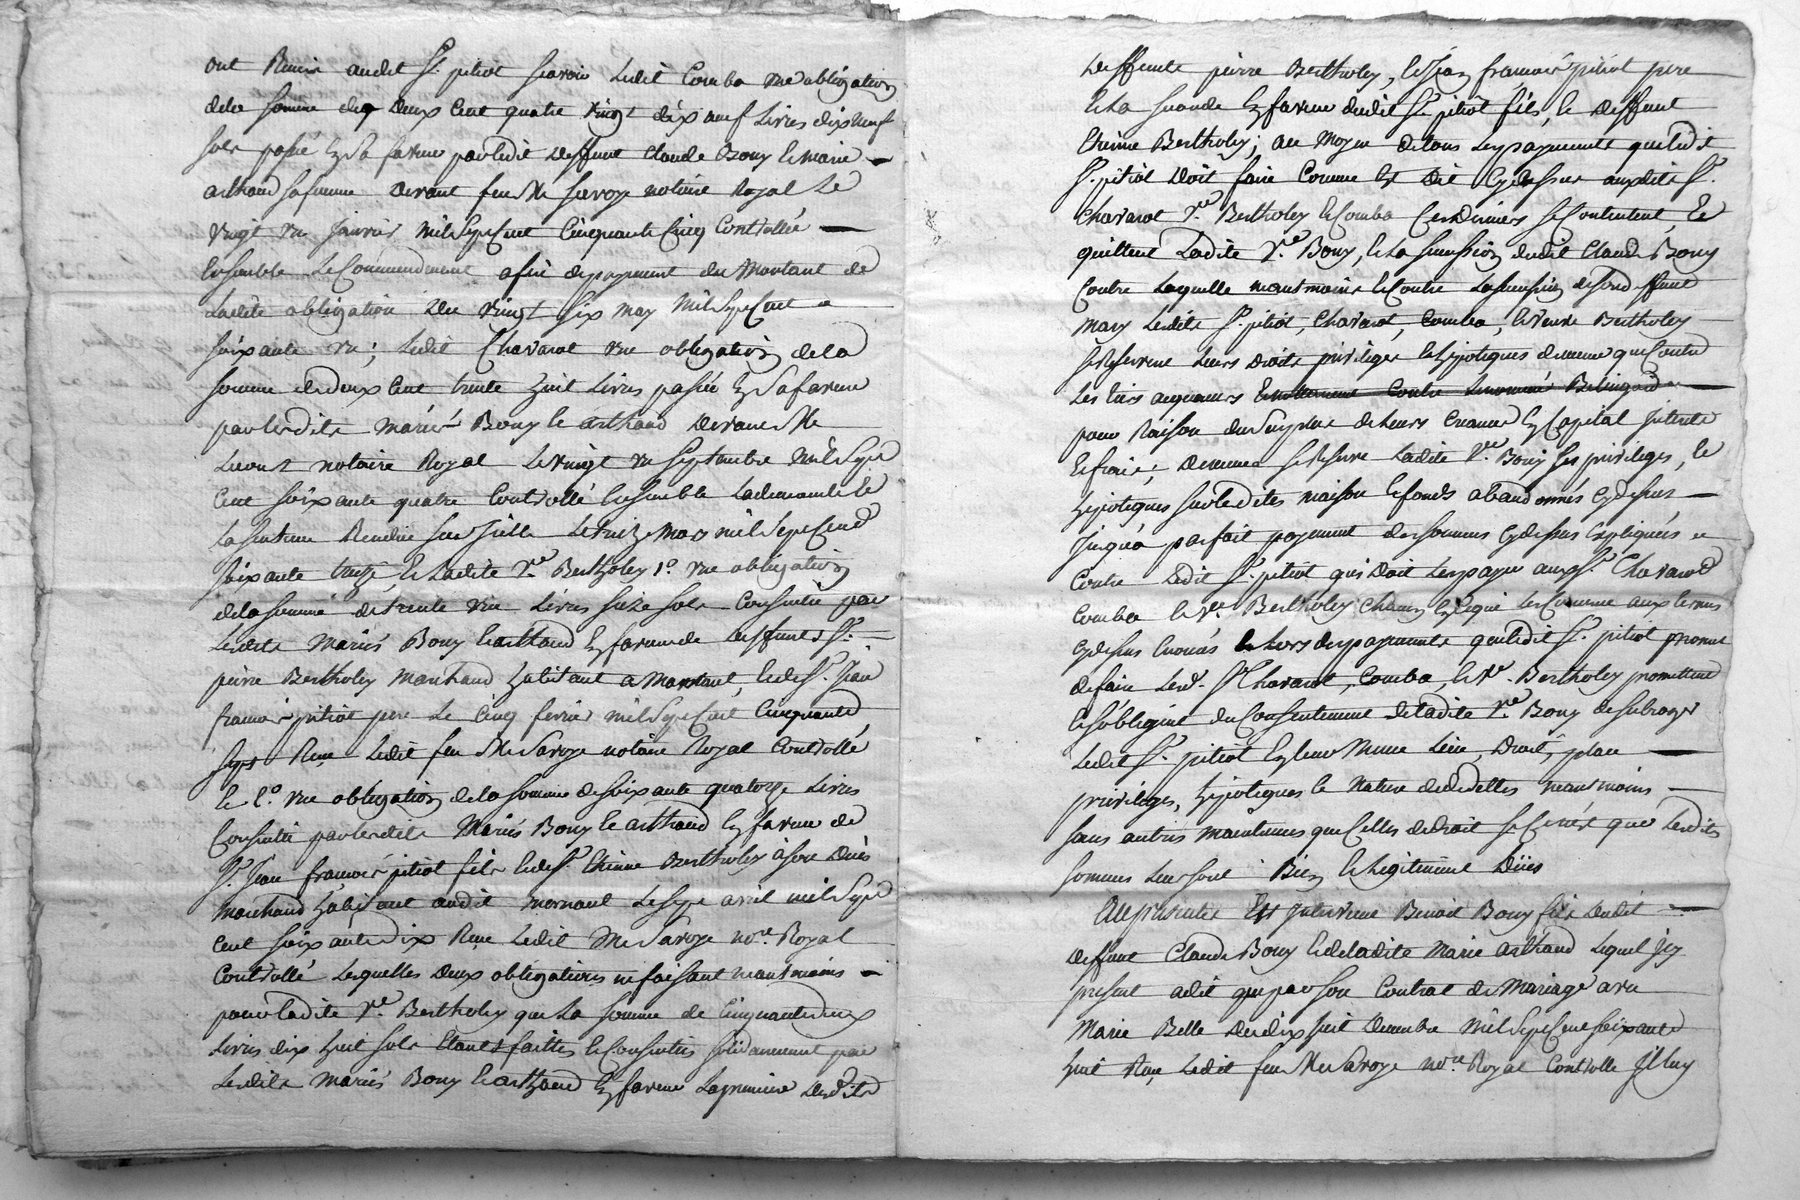 ont Remis audit Sr. pitiot scavoir Ledit Comba une obligation
dela somme de Deux Cent quatre vingt dix neuf Livres dix neuf
sols passé En sa faveur par ledit deffunt Claude Bony & marie
arthaud sa femme devant feu Me Savoye notaire Royal Le
vingt un Janvier mil Sept Cent Cinquante Cinq Controllée
Ensemble Le Commandement afin de payement du Montant de
Ladite obligation Du vingt six may mil Sept Cent
soixante un; Ledit Chavanot une obligation de la
somme de deux Cent trente huit Livres passée En sa faveur
par lesdits mariés Bony & arthaud devant Me
notaire Royal Le vingt un septembre mil Sept
Cent soixante quatre Controllé Ensemble La demande &
La sentence Rendüe sur Icelle Le huit mars mil Sept Cent
soixante treize, & Ladite Ve. Bertholey 1o. une obligation
de la somme de trente une Livres seize sols Consentie par
Lesdits Mariés Bony & arthaud En faveur de deffunt Sr.
pierre Bertholey Marchand habitant a Mornant, & de Sr. Jean
francois pitiot pere Le Cinq fevrier mil Sept Cent Cinquante
sept Reçu Ledit feu Me Savoye notaire Royal Controllé
& 2o. une obligation de la somme de soixante quatorze Livres
Consentie par lesdits Mariés Bony & arthaud En faveur de
Sr. Jean francois pitiot fils & de Sr. Etienne Bertholey
Marchand habitant audit mornant Le sept avril mil Sept
Cent soixante dix Reçu Ledit Me Savoye nore. Royal
Controllé Lesquelles Deux obligations ne faisant neantmoins
pour Ladite Ve. Bertholey que La somme de Cinquante deux
Livres dix huit sols Etant faittes & Consenties solidairement par
Lesdits Mariés Bony & arthaud En faveur La premiere desdits
deffunts pierre Bertholey, & Jean francois pitiot pere
& La seconde En faveur dudit Sr. pitiot fils, & deffunt
Etienne Bertholey; au Moyen de tous Les payements que Ledit
Sr. pitiot Doit faire Comme Est Dit Cy dessus auxdits Sr.
Chavanot Ve. Bertholey & Comba Ces Derniers se Contentent, Et
quittent Ladite Ve. Bony, & La succession dudit Claude Bony
Contre Laquelle neantmoins & Contre La succession de son deffunt
mary Lesdits Sr. pitiot, Chavanot, Comba, & veuve Bertholey
se Reservent Leurs Droits privileges & hipoteques de meme que Contre
Les tiers acquereurs
pour Raison du Surplus de Leurs Creances En Capital Interets
& frais; de meme se Reserve Ladite Ve. Bony ses privileges, &
hipoteques sur Lesdites maison & fonds abandonnés Cy dessus
Jusqua parfait payement des sommes Cy dessus Expliquées
Contre Ledit Sr. pitiot qui Doit Les payer aux Sr. Chavanot
Comba & Ve. Bertholey Chacun En ce qui Les Concerne aux termes
cy dessus Enoncés & Lors des payements que Ledit Sr. pitiot promet
de faire Lesd. Sr Chavanot, Comba, & Ve. Bertholey promettent
& s'obligent du Consentement de Ladite Ve. Bony de subroger
Ledit Sr. pitiot En leur Meme Lieu, Droit, place
privileges, hipoteques & Nature de dettes neantmoins
sans autres maintenues que Celles de droit & que Lesdits
sommes Leur sont Bien & Legitimement Dües
Au presentes Est Intervenu Benoit Bony fils dudit
deffunt Claude Bony & de Ladite Marie arthaud Lequel Icy
present a dit que par son Contrat de Mariage avec
Marie Belle Du dix huit Decembre Mil Sept Cent soixante
huit Reçu Ledit feu Me Savoye nore. Royal Controllé Il luy